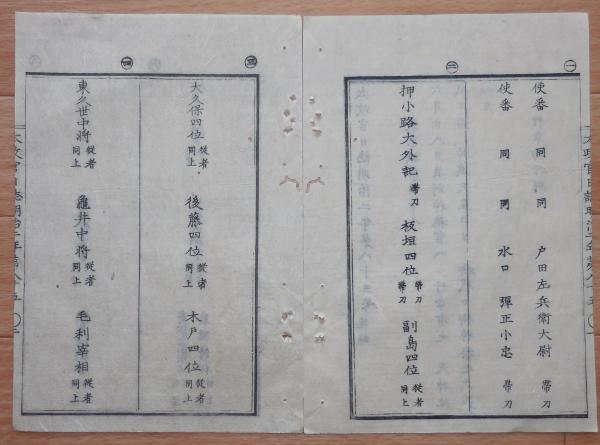 一
使番 同 同 戸田左兵衛大尉 帯刀
使番 同 同 水口 弾正小忠 帯刀
二
押小路大外記 帯刀 板垣四位 帯刀 帯刀 副島四位 従者 同上
三
大久保四位 従者 同上 後藤四位 従者 同上 木戸四位 従者 同上
四
東久世中将 従者 同上 亀井中将 従者 同上 毛利宰相 従者 同上
太政官日誌明治二年第八十五